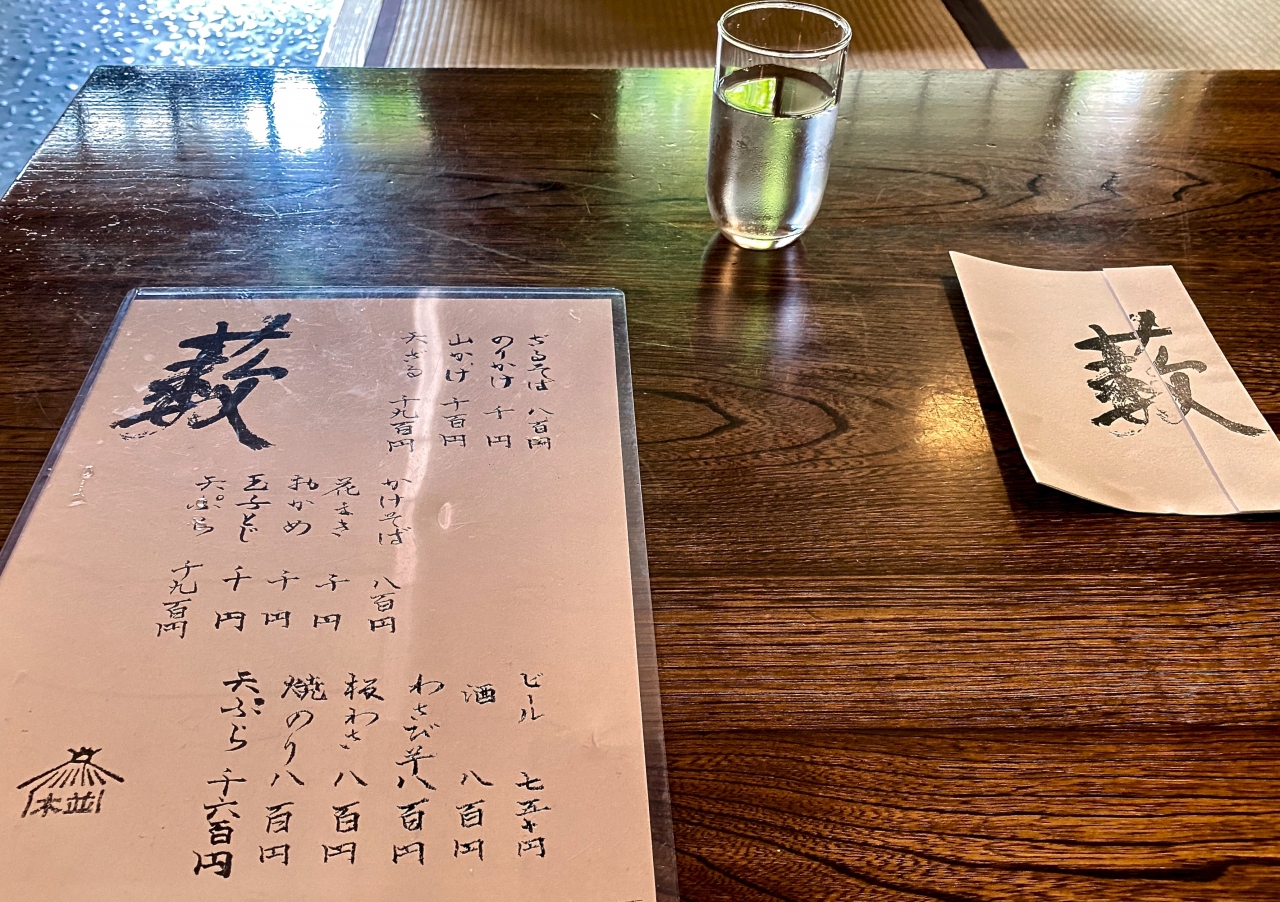 ざるそば 八百円
のりかけ 千円
山かけ 千百円
天ざる 千九百円
藪
かけそば 八百円
花まき 千円
わかめ 千円
玉子とじ 千円
天ぷら 千九百円
ビール 七五十円
酒 八百円
わさび芋 八百円
板わさ 八百円
焼のり 八百円
天ぷら 千六百円
並木
藪